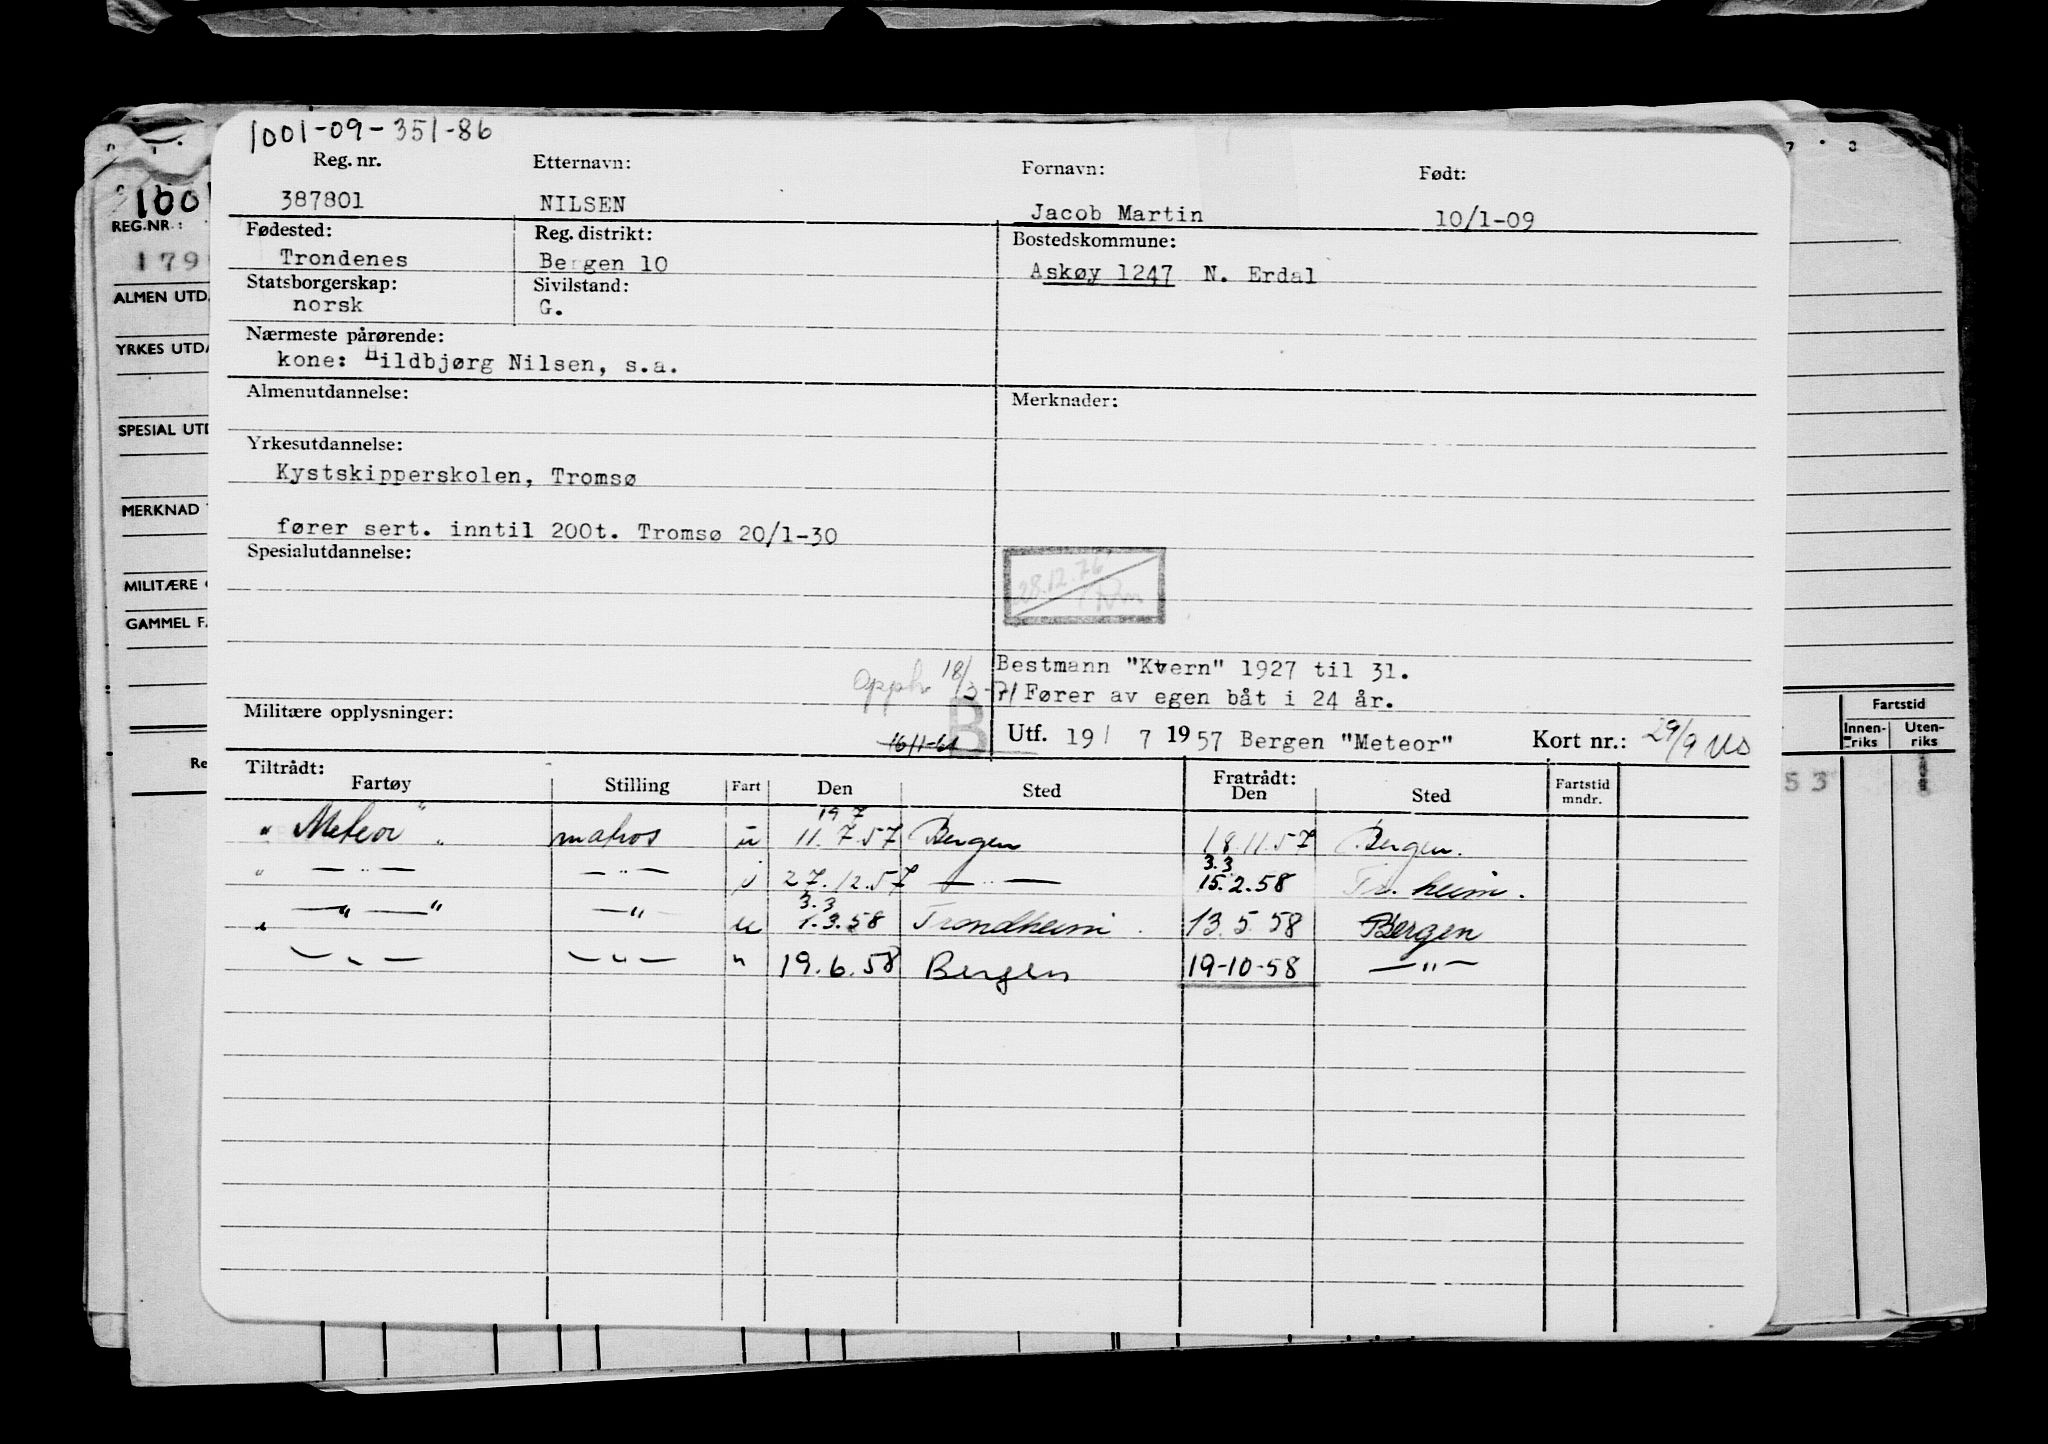 1001-09-351-86
Reg. nr. Etternavn: Fornavn: Født:
387801 NILSEN Jacob Martin 10/1-09
Fødested: Reg. distrikt: Bostedskommune:
Trondenes Bergen 10 Askøy 1247 N. Erdal
Statsborgerskap: Sivilstand:
norsk G.
Nærmeste pårørende:
kone: Hildbjørg Nilsen, s.a.
Almenutdannelse: Merknader:
Yrkesutdannelse:
Kystskipperskolen, Tromsø
fører sert. inntil 200t. Tromsø 20/1-30
Spesialutdannelse:
28.12.76
Opph. 18/3-71
Bestmann "Kvern" 1927 til 31.
Fører av egen båt i 24 år.
Militære opplysninger:
16/1-61 B
Utf. 19/7 1957 Bergen "Meteor" Kort nr.: 29/9
Tiltrådt: Fratrådt:
Fartøy Stilling Fart Den Sted Den Sted Fartstid mndr.
19 7
" Meteor " matros u 11.7.57 Bergen 18.11.57 Bergen.
3.3
" — " — — " — 27.12.57 — " — 15.2.58 Tr. heim.
3.3
— " — " — " — u 1.3.58 Trondheim 13.5.58 Bergen
— " — — " — " 19.6.58 Bergen 19-10-58 — " —
REG.NR.:
179
ALMEN UTD.
YRKES UTDA
SPESIAL UTD
MERKNAD
MILITÆRE
GAMMEL FA
Re
Fartstid
Innen-riks Uten-riks
53